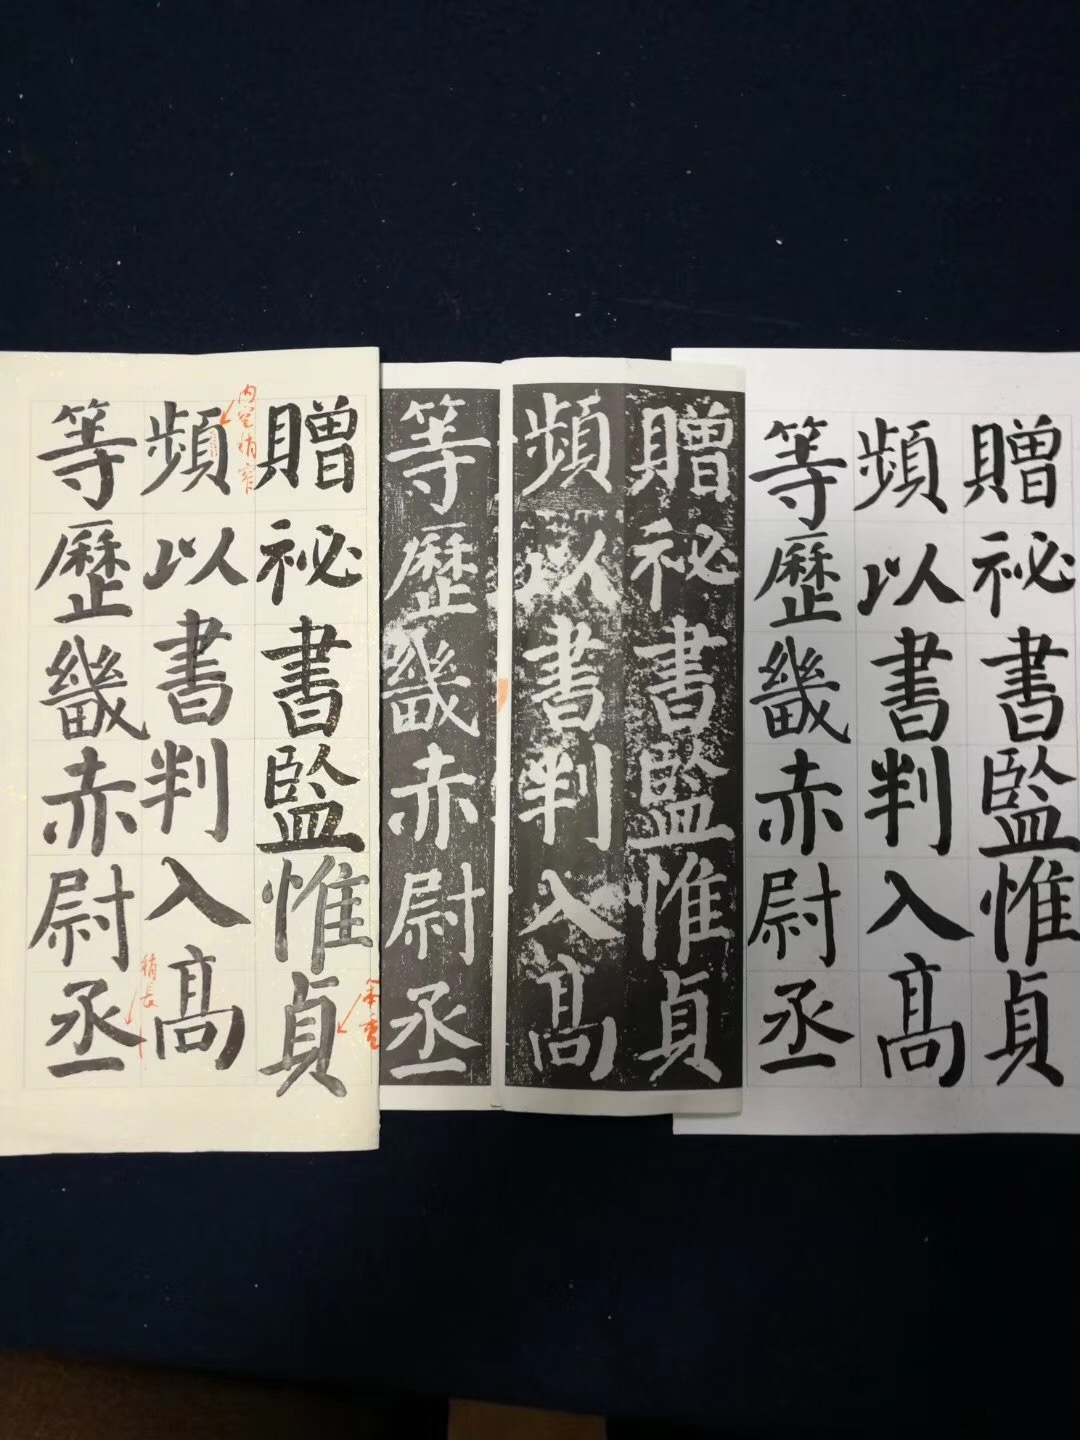 贈祕書監惟貞
頻以書判入髙
等歷畿赤尉丞
贈祕書監惟貞
頻以書判入髙
等歷畿赤尉丞
贈祕書監惟貞
頻以書判入髙
等歷畿赤尉丞
内空稍窄
稍长